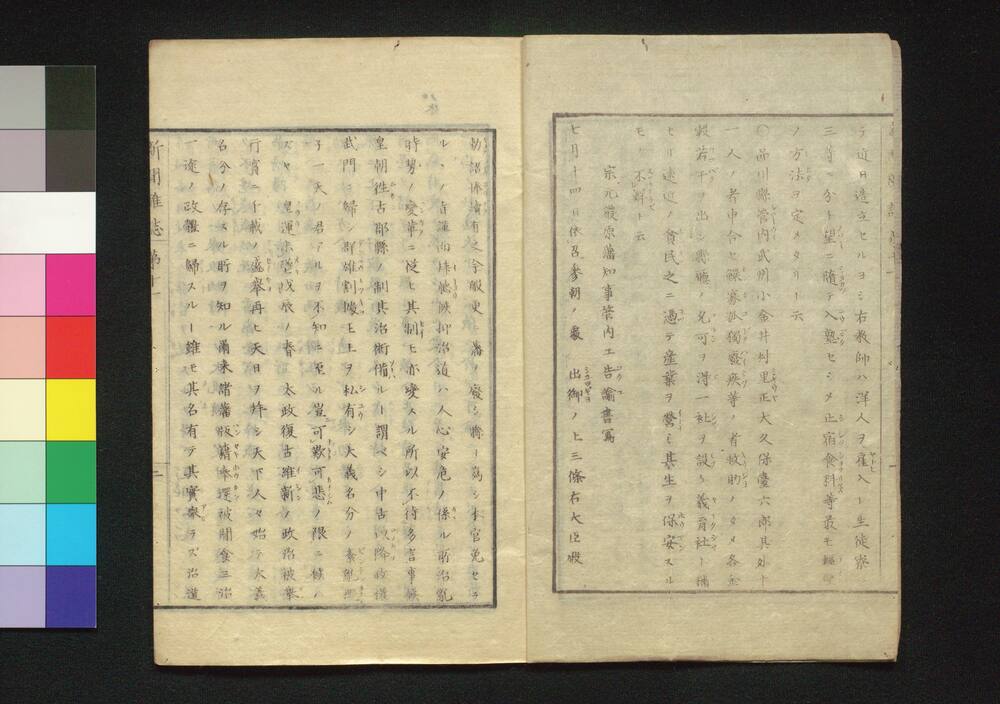 テ近日造立セルヨシ右教師ハ洋人ヲ雇入レ生徒寮
三等ニ分ト望ニ随テ入塾セシメ止宿食料等最モ輕
ノ方法ヲ定メタリト云
○品川縣管内武州小金井村里正大久保六郎其外十
一人ノ者申合セ鰥寡孤獨癈疾等ノ者救助ノタメ各金
若干ヲ出シ縣廳ノ允可ヲ得一社ヲ設ケ義育社ト稱
セリ遠近ノ貧民之ニ憑テ産業ヲ營ミ其生ヲ保安スル
モノ不尠ト云
宗元嚴原藩知事管内エ告諭書寫
七月十四日依召参朝ノ處出御ノ上三條右大臣殿
勅詔捧讀有之今般更ニ藩ヲ廢シ縣ト爲シ本官免セラ
ル
時勢ノ變革ニ從ヒ其制モ亦變スル所以不待多言事候
皇朝往古郡縣ノ制其治術備ルト謂ベシ中古以降政道
武門ニ歸シ群雄割據王土ヲ私有シ大義名分ノ紊亂
一天ノ君アルヲ不知ニ至ル豈可歎可悲ノ限ニ候ハ
スヤ皇運挽回戊辰ノ春太政復古維新ノ政治被擧
行實ニ千載ノ盛擧再ヒ天日ヲ拜シ天下人々始テ大義
名分ノ存スル所ヲ知ル爾來諸藩版籍奉還被聞食三治
一途ノ改體ニ歸スルト雖モ其名有テ其實擧ラズ治道
新聞雜誌 第十一